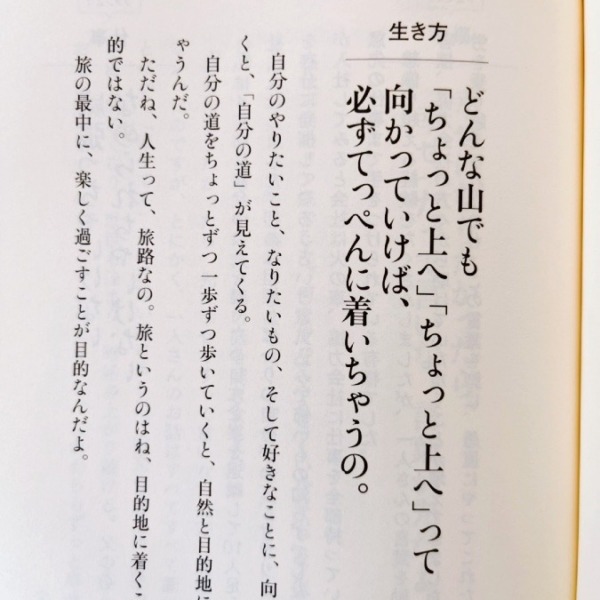 生き方
どんな山でも
「ちょっと上へ」「ちょっと上へ」って
向かっていけば、
必ずてっぺんに着いちゃうの。
自分のやりたいこと、なりたいもの、そして好きなことに、向
くと、「自分の道」が見えてくる。
自分の道をちょっとずつ一歩ずつ歩いていくと、自然と目的地に
ゃうんだ。
ただね、人生って、旅路なの。旅というのはね、目的地に着くこ
的ではない。
旅の最中に、楽しく過ごすことが目的なんだよ。